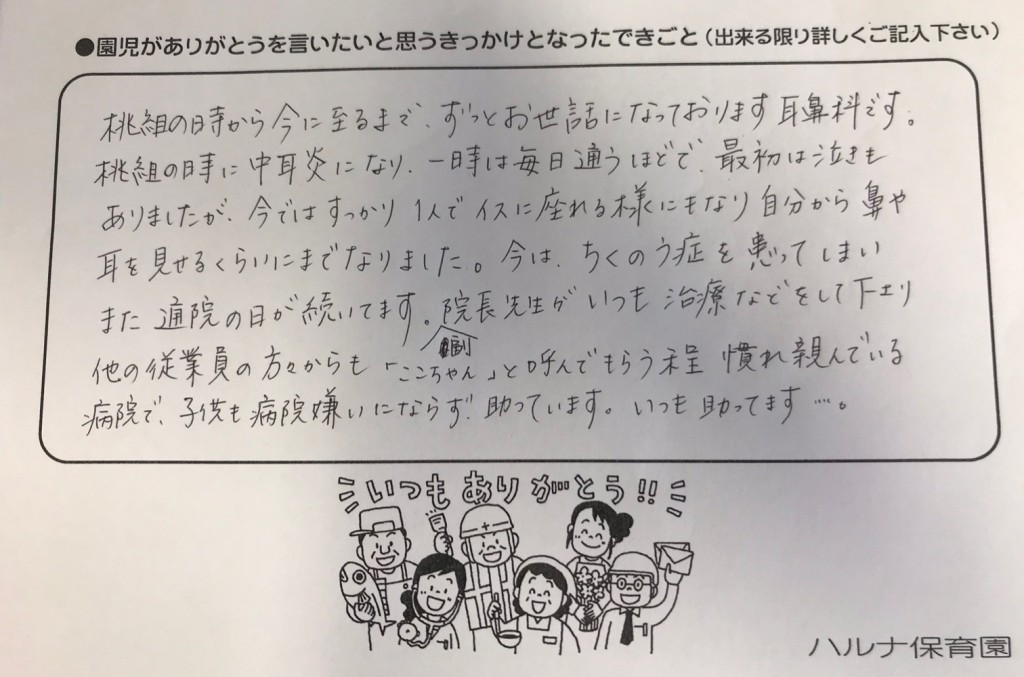 ●園児がありがとうを言いたいと思うきっかけとなったできごと（出来る限り詳しくご記入下さい）
桃組の時から今に至るまで、ずっとお世話になっております耳鼻科です。
桃組の時に中耳炎になり、一時は毎日通うほどで、最初は泣きも
ありましたが、今ではすっかり1人でイスに座れる様にもなり自分から鼻や
耳を見せるくらいにまでなりました。今は、ちくのう症を患ってしまい
また通院の日が続いてます。院長先生がいつも治療などをして下さり
副
他の従業員の方々からも「ここちゃん」と呼んでもらう程慣れ親んでいる
病院で、子供も病院嫌いにならず助っています。いつも助ってます…。
いつもありがとう!!
ハルナ保育園